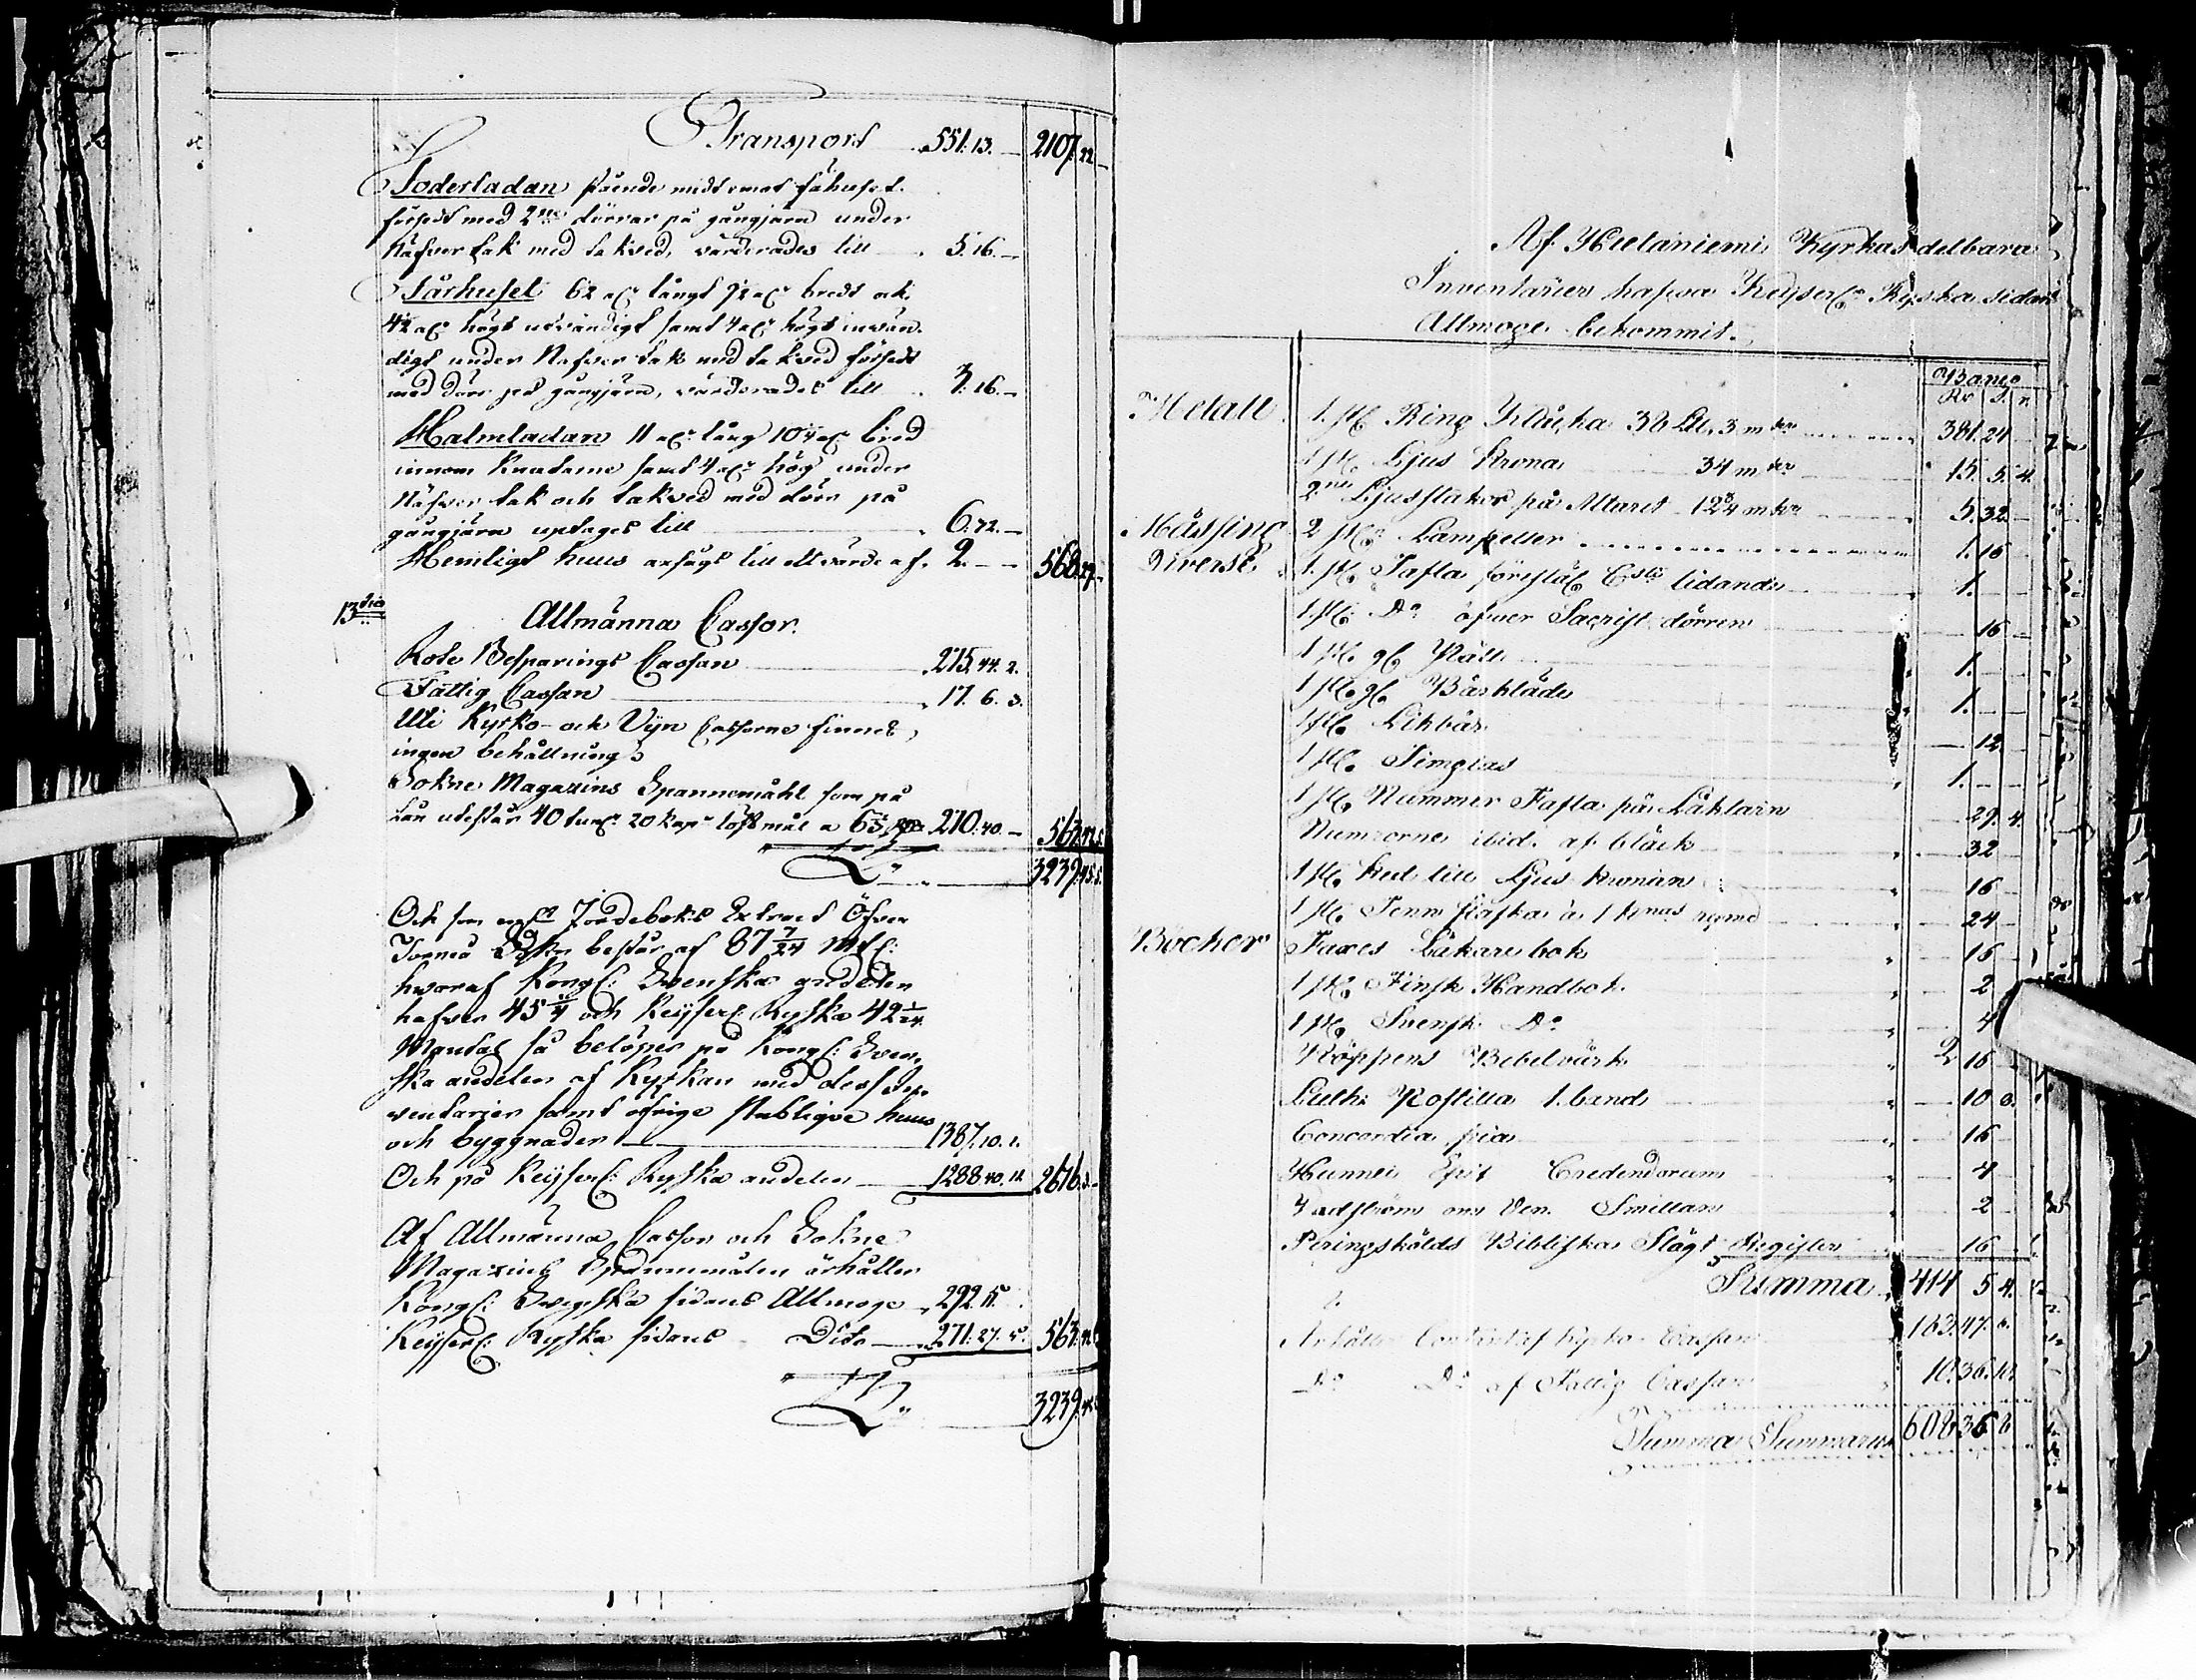 Transport 551.13.— 2107.22—
Foderladan stående midt emot fähuset
försedt med 2ne dörrar på gångjärn under
Näfver tak med takved, värderades till 5.16.—
Fårhuset 6½ aln långt 7½ aln bredt och
4½ aln högt utvändigt samt 4 aln högt invän-
digt under Näfver tak med takved försedt
med dörr på gångjärn, värderades till 3.16.—
Halmladan 11 aln lång 10¼ aln bred
innom knutarne samt 4 aln hög under
Näfver tak och takved med dörr på
gångjärn uptages till 6.72.—
Hemligt huus ansågs till ett värde af 2.— — 568.27.
13de
Allmänna Cassor.
Rote Besparings Cassan 275.44.2.
Fattig Cassan 17.6.3.
Uti Kyrko och Vijn Cassorne finnes
ingen behållning
Sokne Magazins Spannemåhl som på
lån utestår 40 tunr 20 kapr löst mål a 270.40.— 563.42.5
Sa 3239.43.5.
Och som enl Jordeboks Extract Öfver
Torneå Sokn består af 87 7/24 Mtl:
hvaraf Kongl: Svenska andelen
hafver 45¼ och Keijserl: Ryska 42 1/24
Mantal så belöpes på Kongl: Sven-
ska andelen af Kyrkan med dess In-
ventarier samt öfrige Publique huus
och byggnader 1387.10.1.
Och på Keijserl: Ryska andelen 1288.40.11 2676.3.
Af Allmänna Cassor och Sokne
Magazins Spannemålen erhåller
Kongl: Svenska sidans Allmoge 292.15.
Keijserl: Ryska sidans Dito 271.27.5. 563.42.5
Sa 3239.45
Af Hietaniemi Kyrkas delbara
Inventarier hafva Keijserl: Ryska sidans
Allmoge bekommit.
Banco
Rd S. r.
Metall 1. st. Ring Klåcka 38 Ll. 3 mkr 381.24
1 st. Ljus Krona 34 mkr 15.5.4.
2ne Ljusstakar på Altaret 12¾ mkr 5.32
Mässing 2 st. Lampetter 1.16
Diverse 1. st. Tafla förestäl Csti lidande 1.
1. st. Do öfver Sacrist. dörren 16
1 st. gl. Plått 1.
1 st. gl. Bårkläde 1.
1 st. Likbår 12
1 st. Timglas 1.
1 st. Nummer Tafla på Läktarn 29.4.
Numrorne ibid. af bläck 32
1 st. Ked till Ljus Kronan 16
1 st. Tenn flaska à 1 Kanas rymd 24
Böcker Faxes Läkare bok 16
1 st. Finsk Handbok 2
1 st. Svensk Do 4
Köppens Bibelvärk 2 16
Luth: Postilla 1. band 10 8.
Concordia pia 16
Hunnei Epit Credendorum 4
om Ven. Smittan 2
Peringskölds Bibliska Slägt Register 16
Summa 414 5 4.
Kyrko Cassan 183.47.6.
Do Do af Fattig Cassan 10.36.10
Summa Summarum 608.36.8